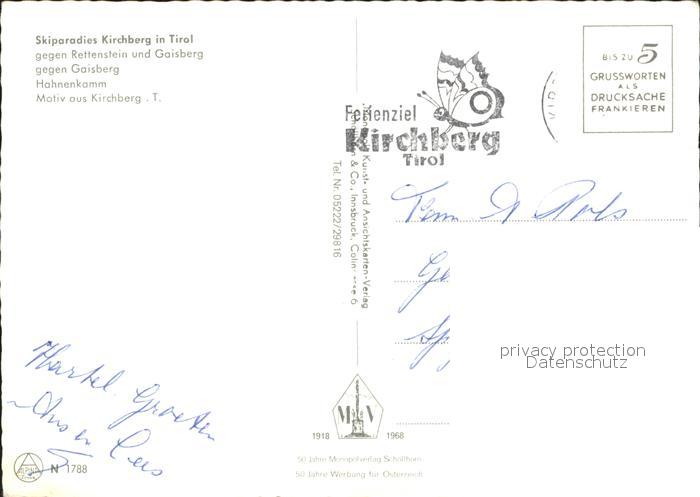 Skiparadies Kirchberg in Tirol
gegen Rettenstein und Gaisberg
gegen Gaisberg
Hahnenkamm
Motiv aus Kirchberg . T.
Ferienziel
Kirchberg
Tirol
BIS ZU 5
GRUSSWORTEN
ALS
DRUCKSACHE
FRANKIEREN
Kunst- und Ansichtskarten-Verlag
& Co., Innsbruck,
Tel. Nr. 05222/29816
Ge
privacy protection
Datenschutz
Hartel. Groeten
Ans en Cees
N 1788
M V
1918 1968
50 Jahre Monopolverlag Schöllhorn
50 Jahre Werbung für Österreich